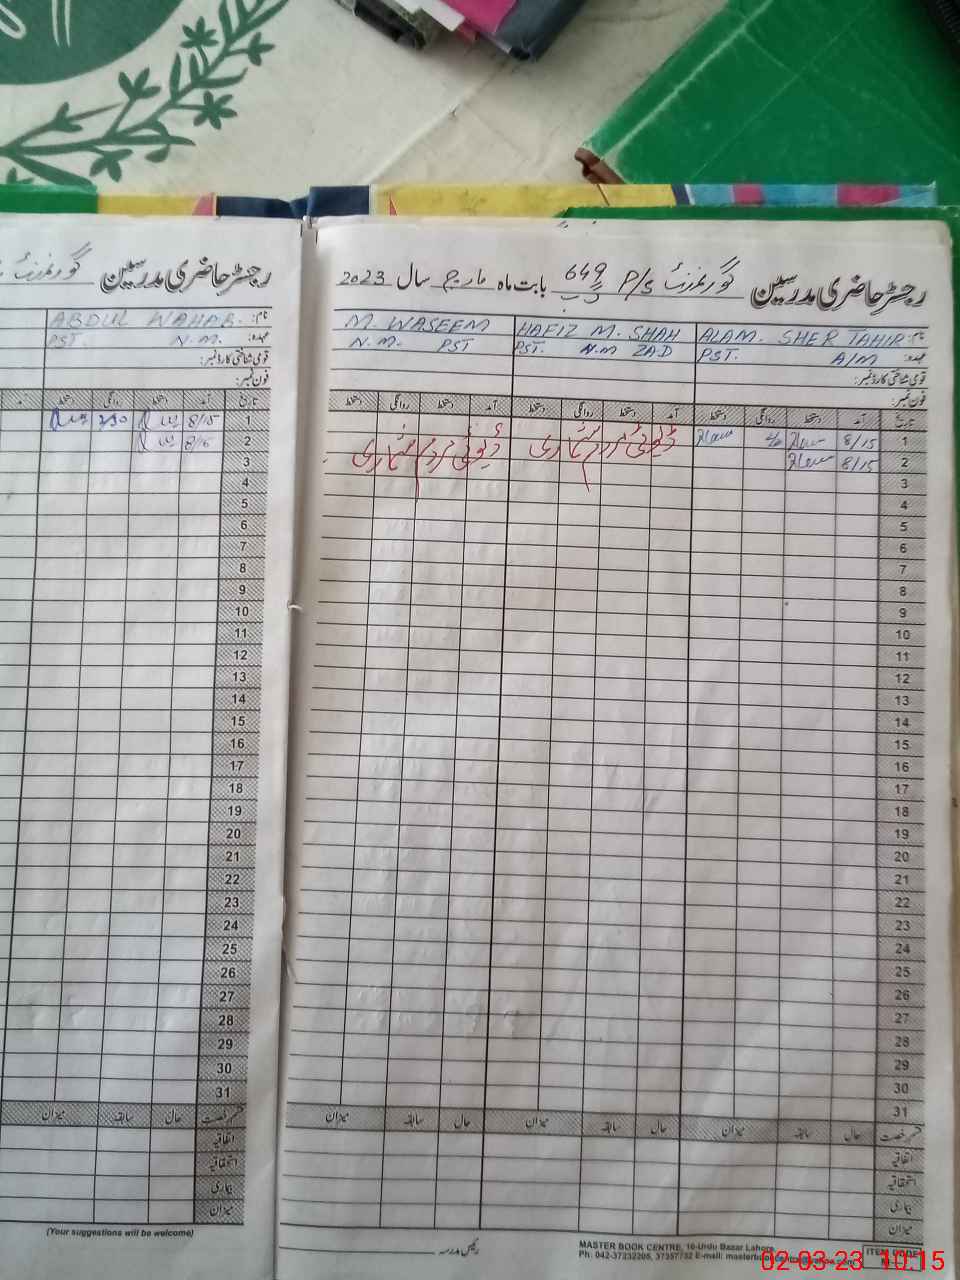 رجسٹر حاضری مدرسین گورنمنٹ
نام: ABDUL WAHAB.
عہدہ: PST. N.M.
قومی شناختی کارڈ نمبر:
فون نمبر:
تاریخ آمد دستخط روانگی دستخط آمد
1 8/15
2 8/15
3
4
5
6
7
8
9
10
11
12
13
14
15
16
17
18
19
20
21
22
23
24
25
26
27
28
29
30
31
قسم رخصت حال سابقہ میزان
اتفاقیہ
استحقاقیہ
بیماری
میزان
(Your suggestions will be welcome)
رجسٹر حاضری مدرسین گورنمنٹ P/S 649 بابت ماہ مارچ سال 2023
نام: ALAM. SHER TAHIR HAFIZ M. SHAH M. WASEEM
عہدہ: PST. A/M PST. N.M ZAD N.M. PST
قومی شناختی کارڈ نمبر:
فون نمبر:
تاریخ آمد دستخط روانگی دستخط آمد دستخط روانگی دستخط آمد دستخط روانگی دستخط
1 8/15 ڈیوٹی مردم شماری ڈیوٹی مردم شماری
2 8/15
3
4
5
6
7
8
9
10
11
12
13
14
15
16
17
18
19
20
21
22
23
24
25
26
27
28
29
30
31
قسم رخصت حال سابقہ میزان حال سابقہ میزان حال سابقہ میزان
اتفاقیہ
استحقاقیہ
بیماری
میزان
رئیس مدرسہ
MASTER BOOK CENTRE, 16-Urdu Bazar Lahore
Ph: 042-37232205, 37357732 E-mail:
ITEM CODE
02-03-23 10:15